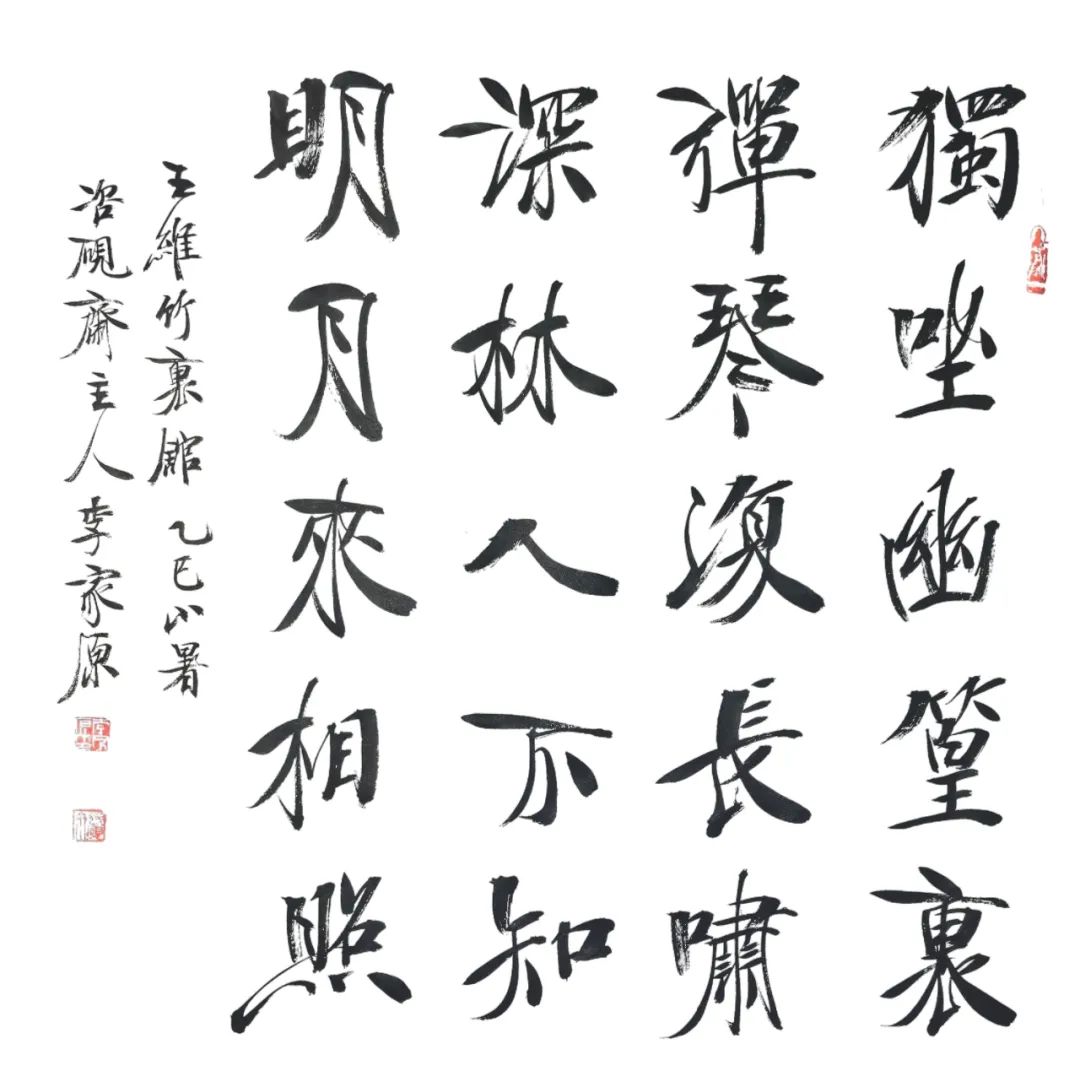 獨坐幽篁裏
彈琴復長嘯
深林人不知
眀月來相照
王維竹裏館 乙巳小暑
咨硯齋主人李家原